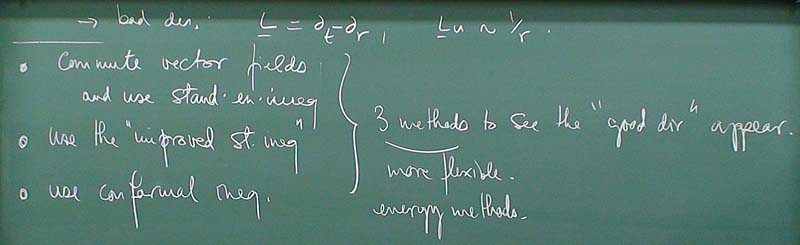 → bad der. : L̲ = ∂t - ∂r , L̲u ~ 1/r .
• Commute vector fields
and use stand. en. ineq
• use the "improved st. ineq"
• use conformal ineq.
3 methods to see the "good der" appear.
more flexible.
energy methods.